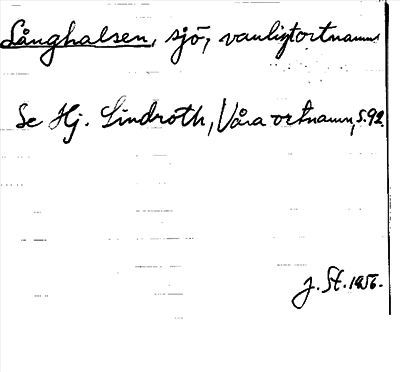 Långhalsen, sjö, vanligt ortnamn
Se Hj. Lindroth, Våra ortnamn, s. 92.
J. St. 1956.